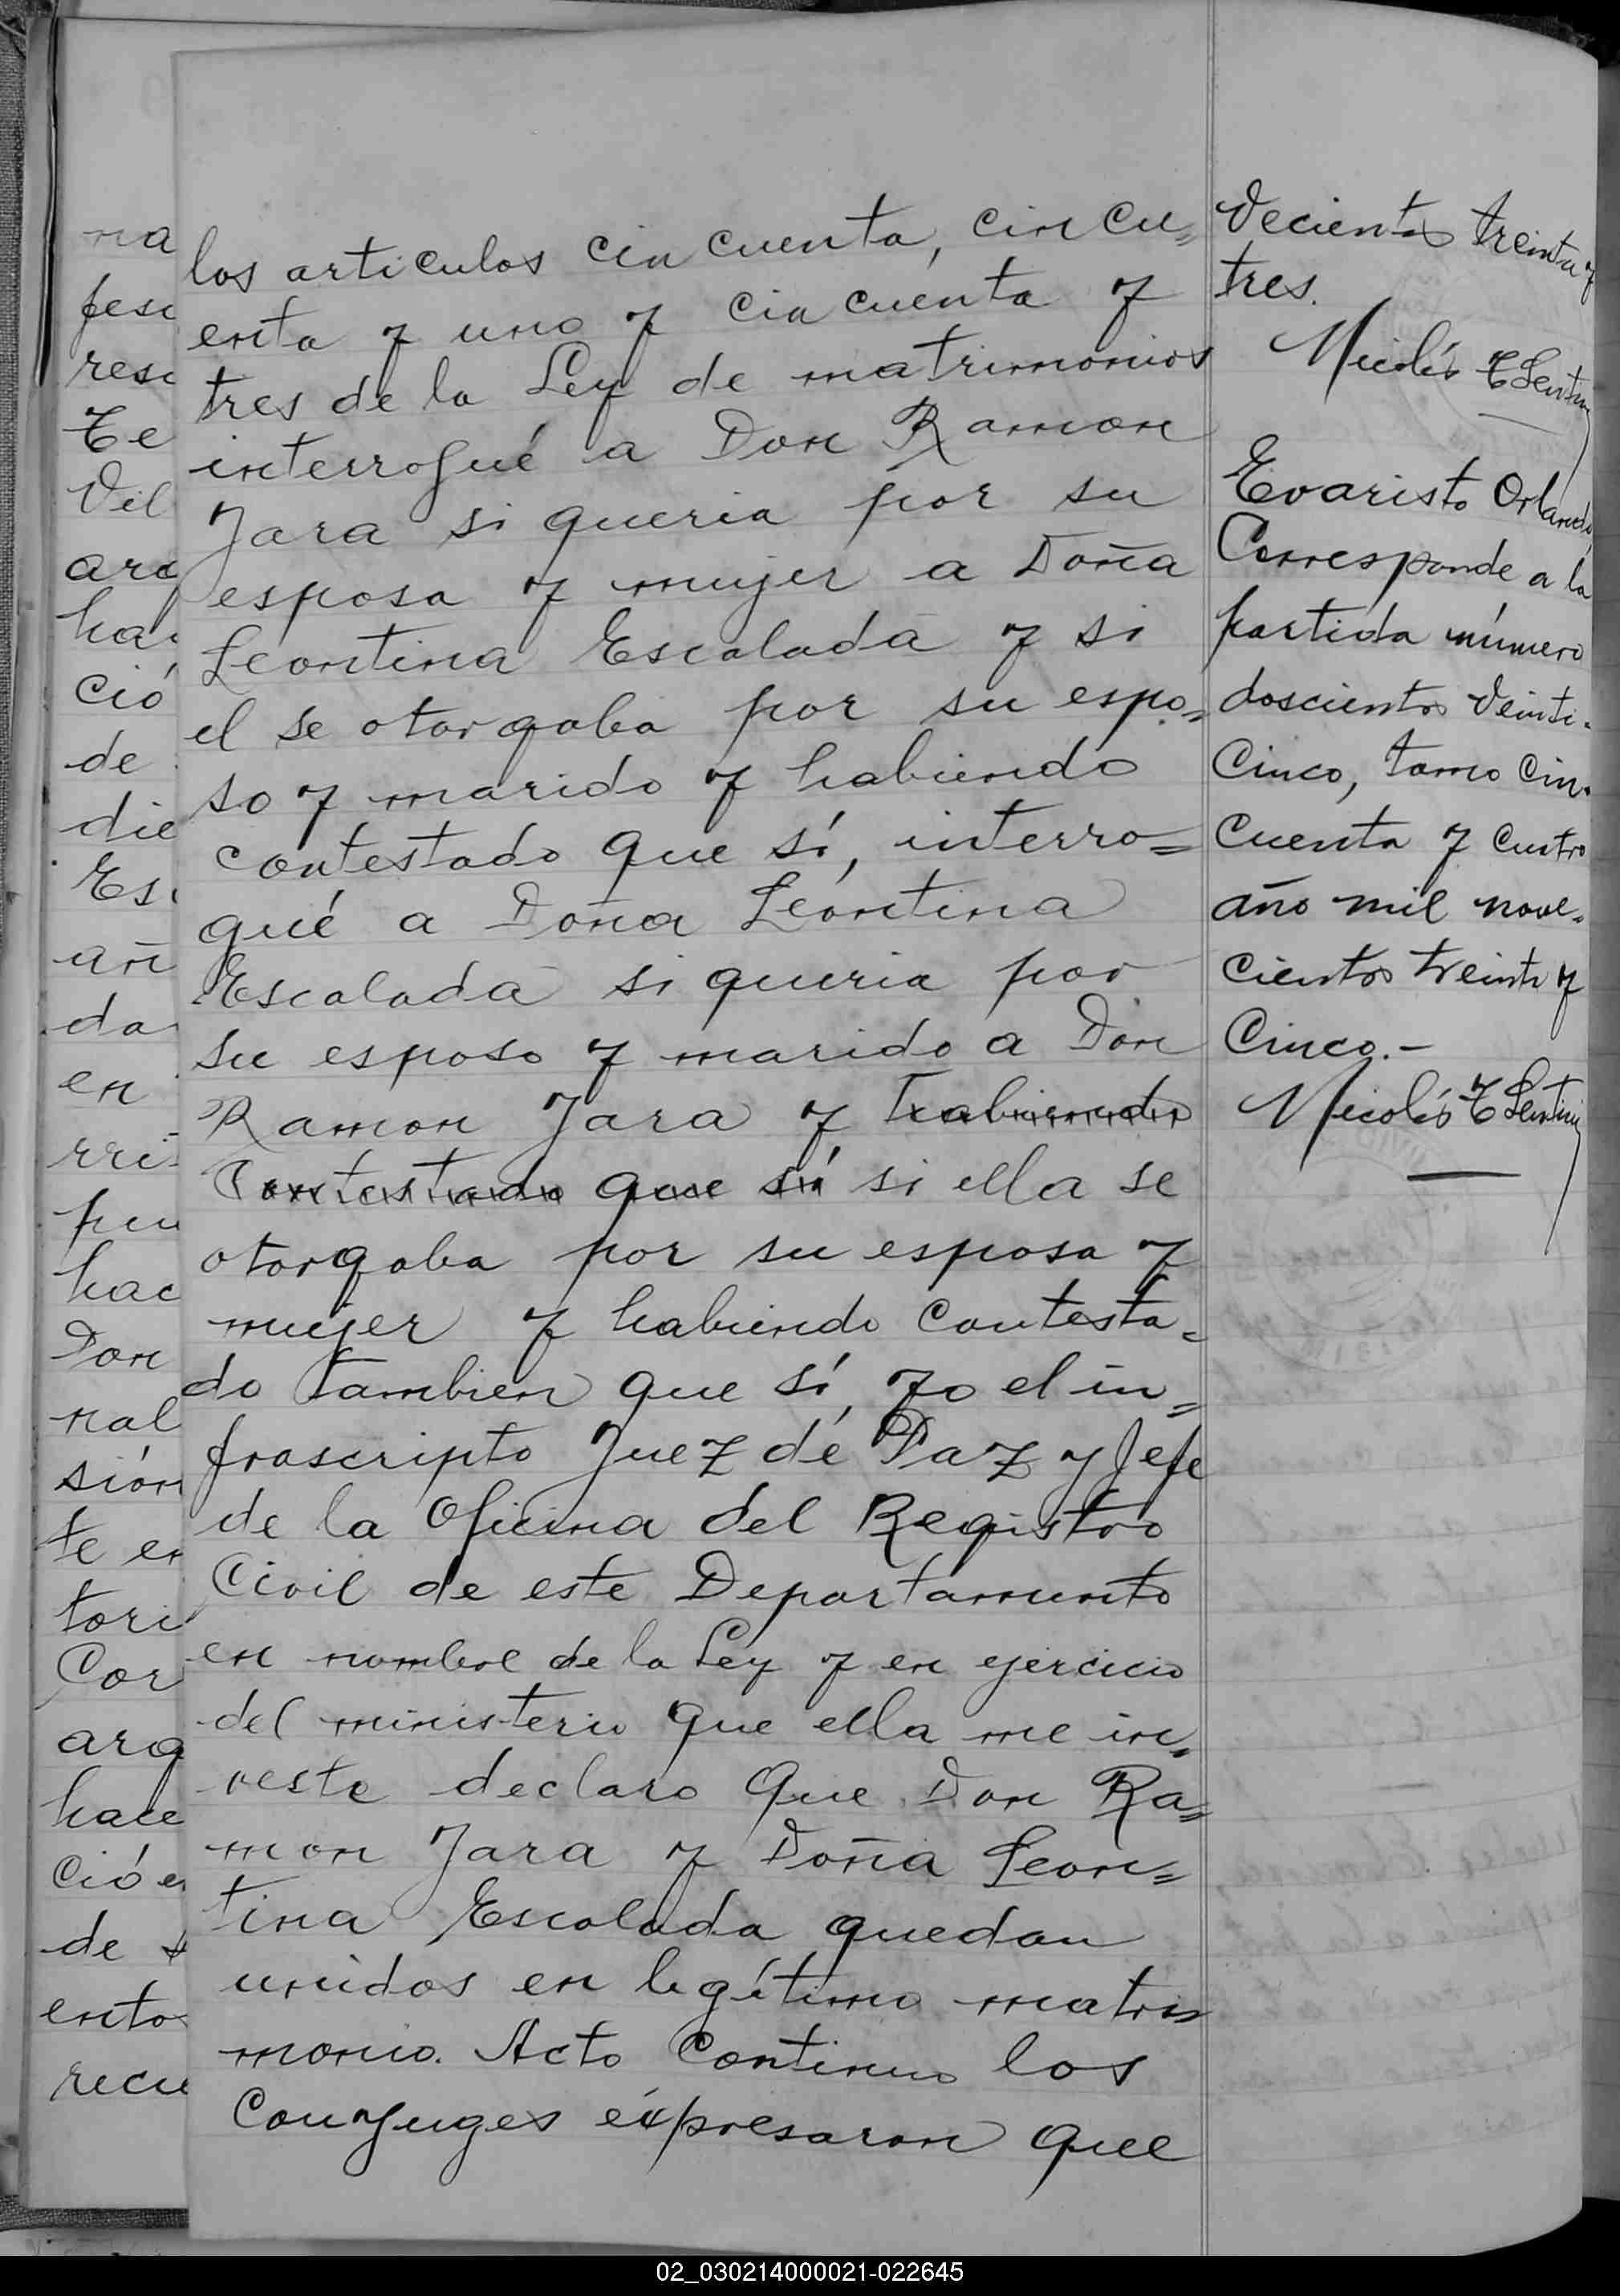 los articulos cincuenta, cincu=
enta y uno y cincuenta y
tres de la Ley de matrimonios
interrogué a Don Ramon
Jara si queria por su
esposa y mujer a Doña
Leontina Escalada y si
el se otorgaba por su espo=
so y marido y habiendo
contestado que sí, interro=
gué a Doña Leontina
Escalada si queria por
su esposo y marido a Don
Ramon Jara y habiendo
Contestado que sí si ella se
otorgaba por su esposa y
mujer y habiendo contesta=
do tambien que sí, yo el in=
frascripto Juez de Paz y Jefe
de la Oficina del Registro
Civil de este Departamento
en nombre de la Ley y en ejercicio
del ministerio que ella me in=
veste declaro que Don Ra=
mon Jara y Doña Leon=
tina Escalada quedan
unidos en legítimo matri=
monio. Acto Continuo los
Conyuges expresaron que
vecientos treinta y
tres.
Nicolás
Evaristo Orlando
Corresponde a la
partida número
doscientos veinti-
cinco, tomo cin-
cuenta y cuatro
año mil nove-
cientos treinta y
cinco.-
Nicolás
na
de
die
da
en
Don
nal
sión
hace
de
ento
02_030214000021-022645